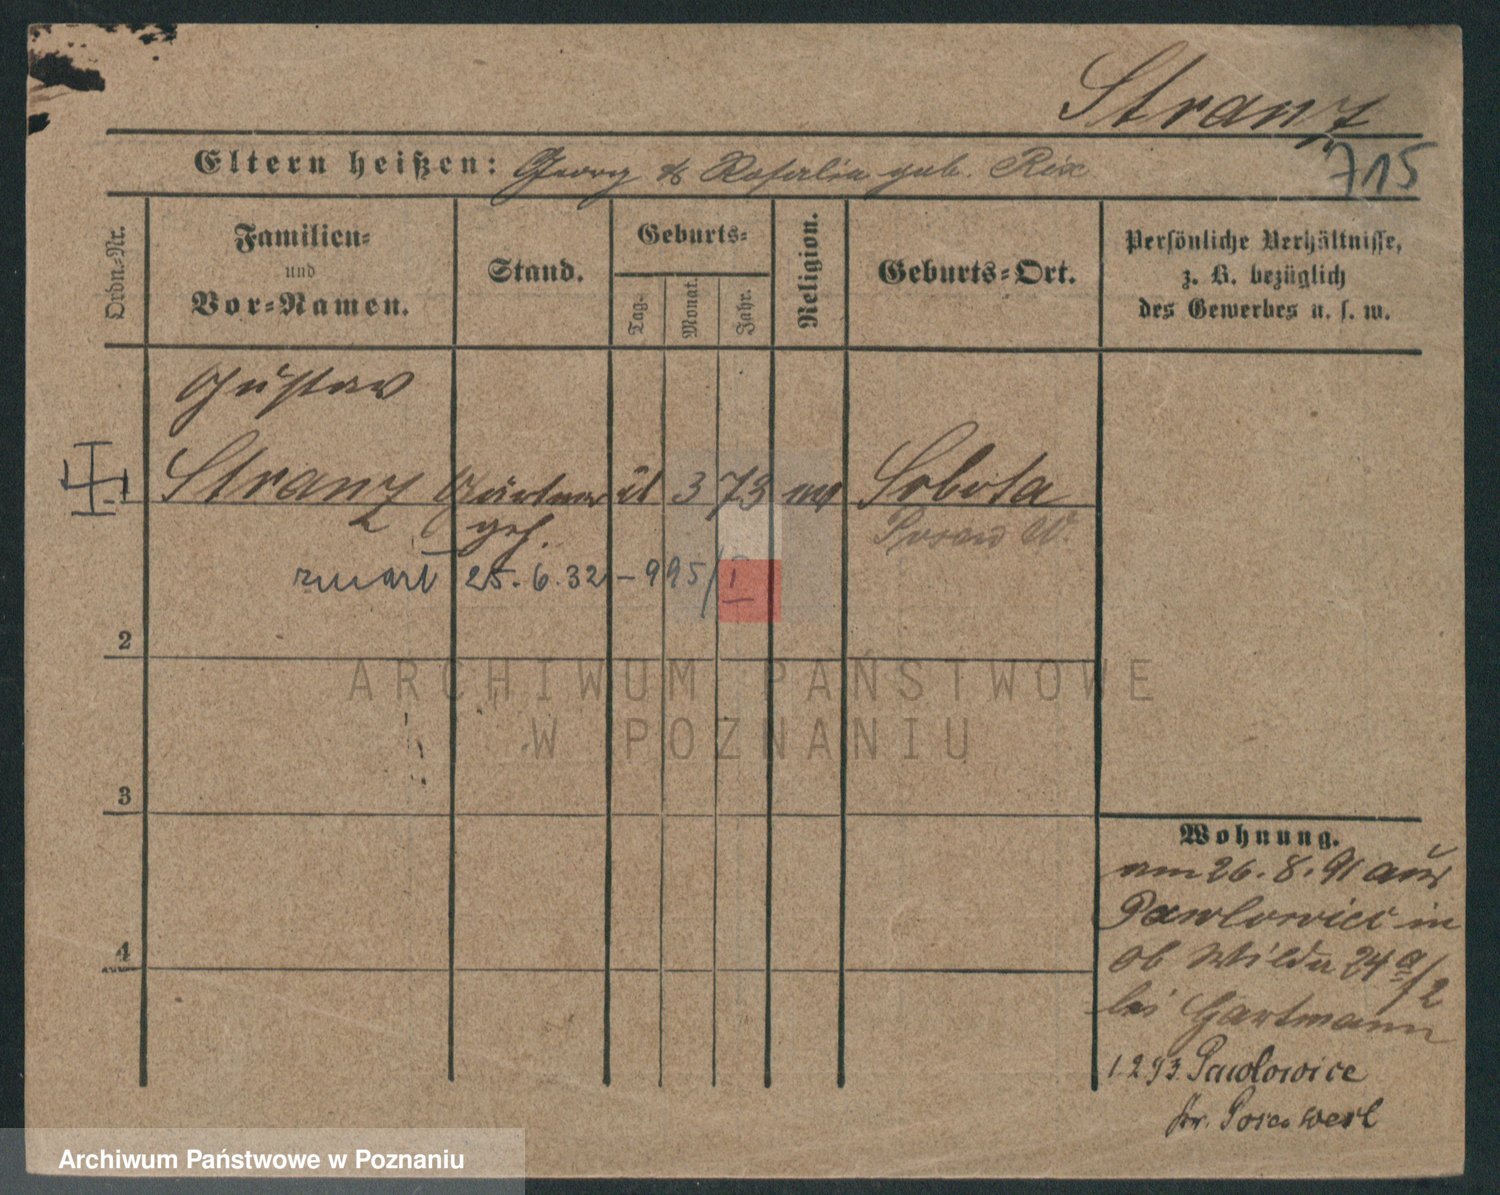 Stranz
715
Eltern heißen: Georg & Rosalia geb. Rix
Ordn.-Nr.
Familien-
und
Vor-Namen.
Stand.
Geburts-
Tag.
Monat.
Jahr.
Religion.
Geburts-Ort.
Persönliche Verhältnisse,
z. B. bezüglich
des Gewerbes u. s. w.
Gustav
Stranz Gärtner 3 73 Sobota
geh. Posen W.
zmarł 25.6.32 - 995/I
2
3
4
Wohnung.
am 26.8.91 aus
Pawlowice in
Ob Wilda 24 a/2
bei Hartmann
1.2.93. Pawlowice
Kr. Posen West
ARCHIWUM PAŃSTWOWE
W POZNANIU
Archiwum Państwowe w Poznaniu